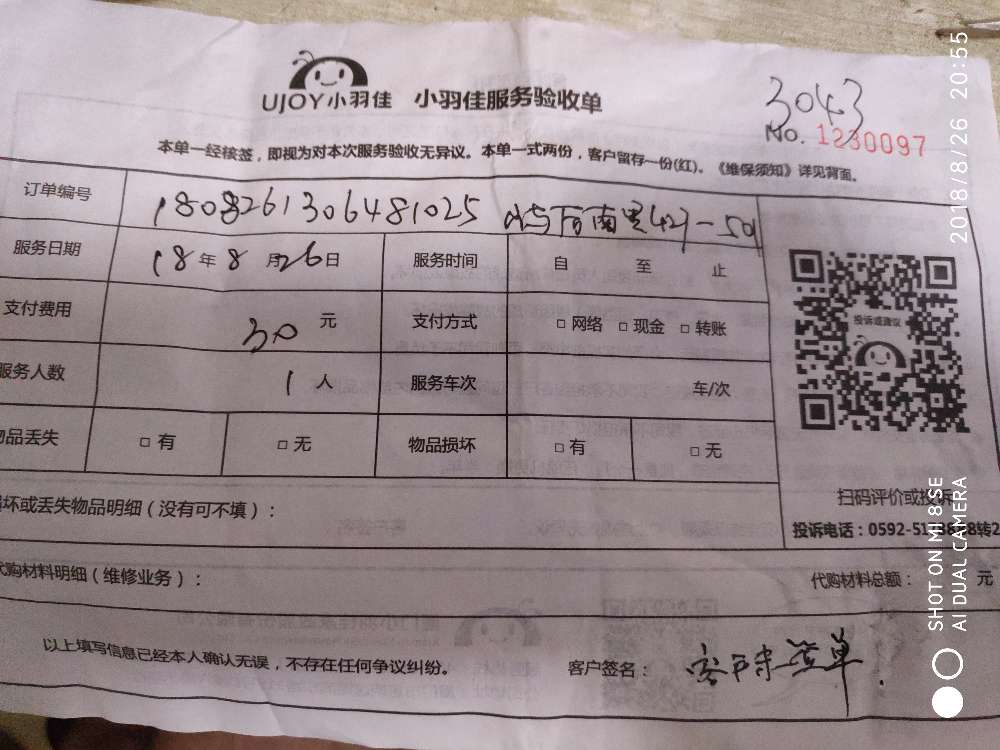 UJOY小羽佳 小羽佳服务验收单
3043
No. 1230097
本单一经核签，即视为对本次服务验收无异议。本单一式两份，客户留存一份(红)。《维保须知》详见背面。
订单编号 180826130648 1025
服务日期 18年8月26日 服务时间 自 至 止
支付费用 30元 支付方式 □网络 □现金 □转账
服务人数 1人 服务车次 车/次
物品丢失 □有 □无 物品损坏 □有 □无
投诉或建议
扫码评价或投诉
坏或丢失物品明细（没有可不填）：
投诉电话：0592-51
代购材料明细（维修业务）： 代购材料总额： 元
以上填写信息已经本人确认无误，不存在任何争议纠纷。 客户签名： 客户未签单
SHOT ON MI 8 SE
AI DUAL CAMERA
2018/8/26 20:55